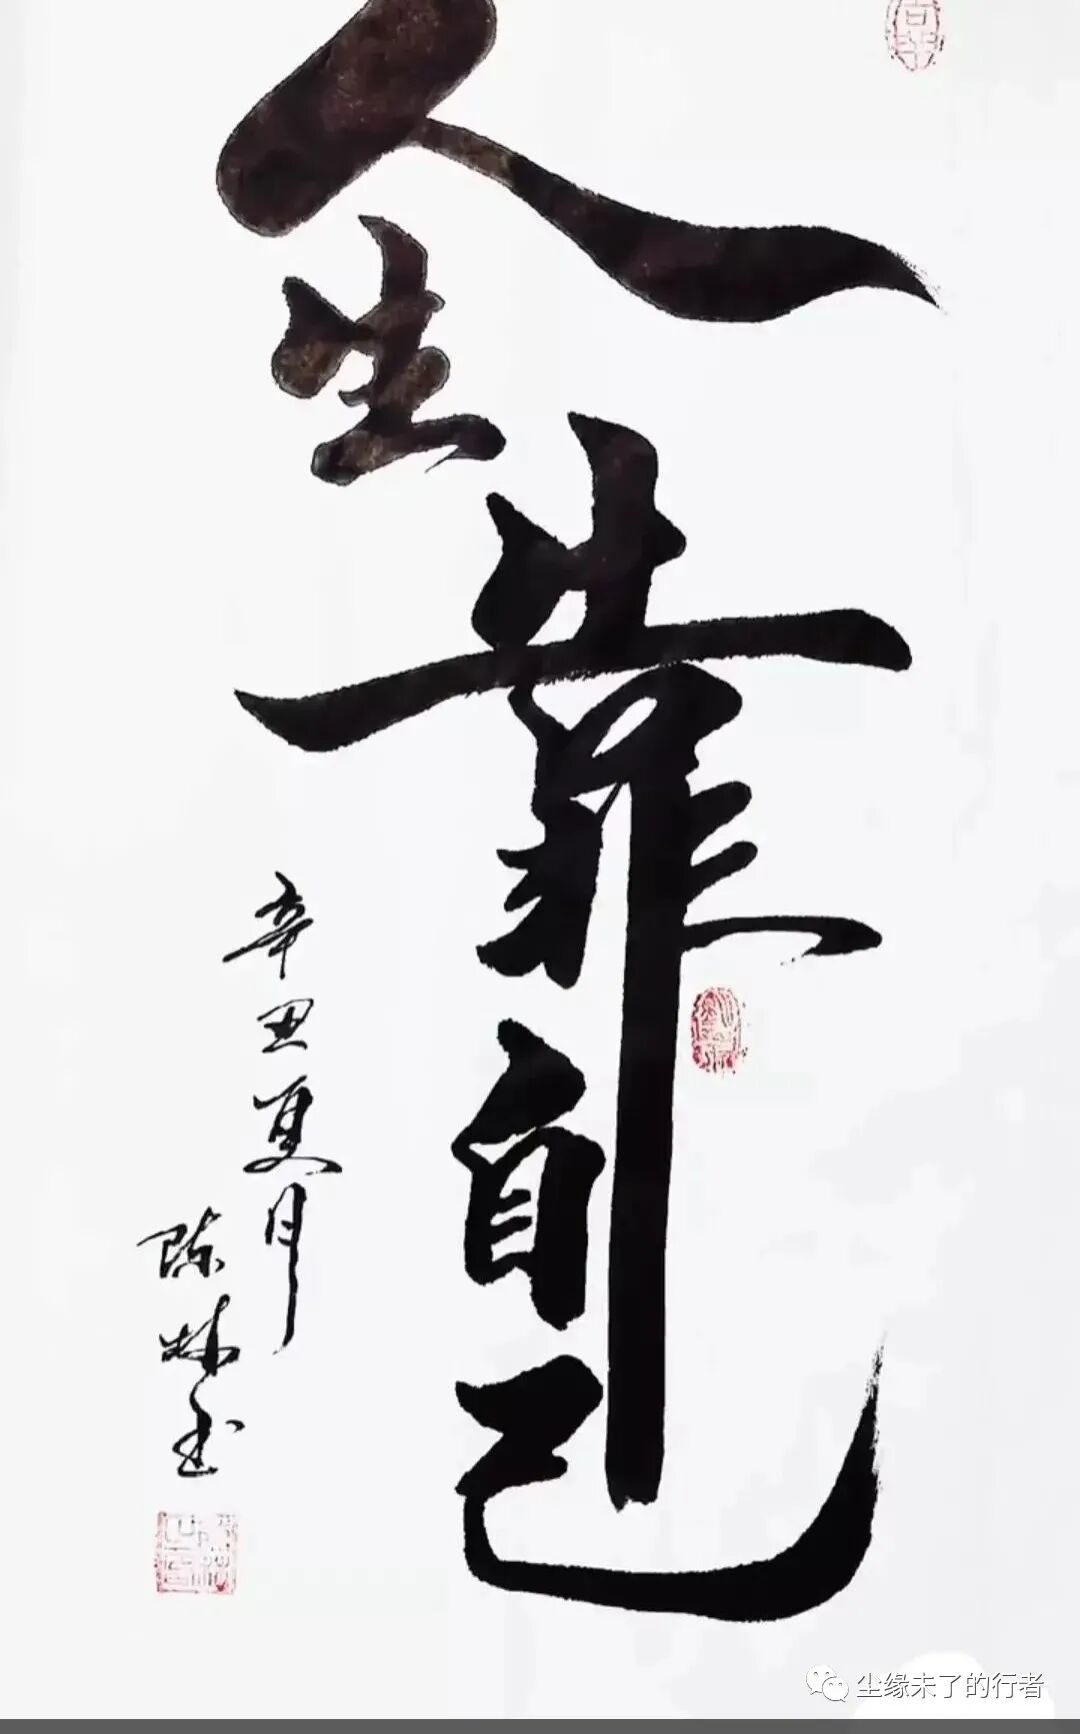 人生靠自己
辛丑夏月
陈林
尘缘未了的行者